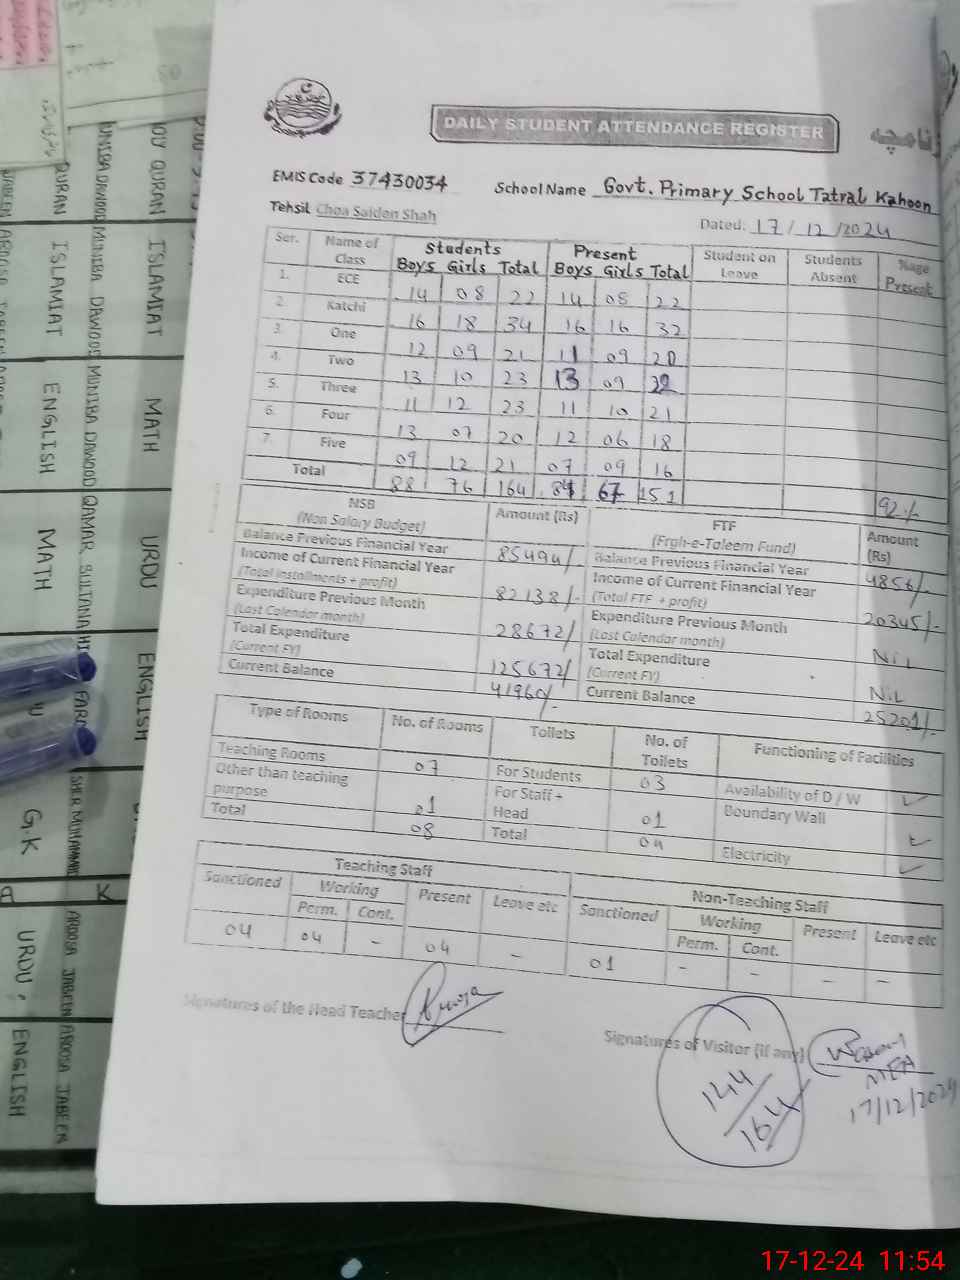 DAILY STUDENT ATTENDANCE REGISTER
EMIS Code 37430034 School Name Govt. Primary School Tatral Kahoon
Tehsil Choa Saiden Shah Dated: 17/12/2024
Ser. Name of Class Students Boys Girls Total Present Boys Girls Total Student on Leave Students Absent %age Present
1. ECE 14 08 22 14 08 22
2. Katchi 16 18 34 16 16 32
3. One 12 09 21 11 09 20
4. Two 13 10 23 13 09 22
5. Three 11 12 23 11 10 21
6. Four 13 07 20 12 06 18
7. Five 09 12 21 07 09 16
Total 88 76 164 84 67 151 92%
NSB (Non Salary Budget) Amount (Rs) FTF (Frgh-e-Taleem Fund) Amount (Rs)
Balance Previous Financial Year 85494/- Balance Previous Financial Year 4856/-
Income of Current Financial Year (Total Installments + profit) 82138/- Income of Current Financial Year (Total FTF + profit) 20345/-
Expenditure Previous Month (Last Calendar month) 28672/ Expenditure Previous Month (Last Calendar month) NiL
Total Expenditure (Current FY) 125672/ Total Expenditure (Current FY) NiL
Current Balance 41960/- Current Balance 25201/-
Type of Rooms No. of Rooms Toilets No. of Toilets Functioning of Facilities
Teaching Rooms 07 For Students 03 Availability of D / W ✓
Other than teaching purpose 01 For Staff + Head 01 Boundary Wall ✓
Total 08 Total 04 Electricity ✓
Teaching Staff Non-Teaching Staff
Sanctioned Working Perm. Cont. Present Leave etc Sanctioned Working Perm. Cont. Present Leave etc
04 04 - 04 - 01 - - - -
Signatures of the Head Teacher
Signatures of Visitor (if any)
MEA
17/12/2024
144/164
QURAN ISLAMIAT ENGLISH MATH
MUNIBA DAWOOD MUNIBA DAWOOD QAMAR SULTANA
QURAN ISLAMIAT MATH URDU ENGLISH
G.K
SHER MUHAMMAD
A K
URDU, ENGLISH
AROOSA JABEEN AROOSA JABEEN
17-12-24 11:54